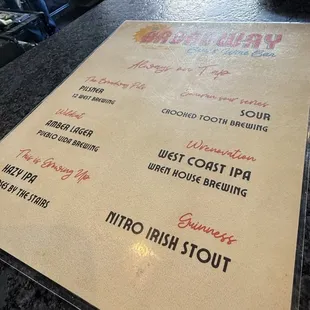 BROADWAY
Always on Tap
The Breaking Pils
PILSNER
12 WEST BREWING
SOUR
CROOKED TOOTH BREWING
Wildcat
AMBER LAGER
PUEBLO VIDA BREWING
Wrenovation
WEST COAST IPA
WREN HOUSE BREWING
This is Growing Up
HAZY IPA
BY THE STAIRS
Guinness
NITRO IRISH STOUT